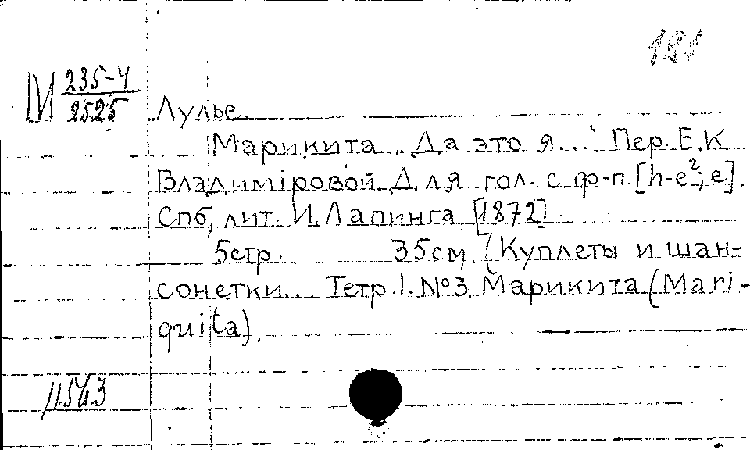 181
М 235-4
2525
Лулье
Марикита „Да это я...” Пер. Е.К
Владиміровой. Для гол. с ф-п [h-e², e].
Спб, лит. И. Лапинга [1872]
5стр. 35см. (Куплеты и шан-
сонетки. Тетр.1. №3 Марикита (Mari-
quita)
11543